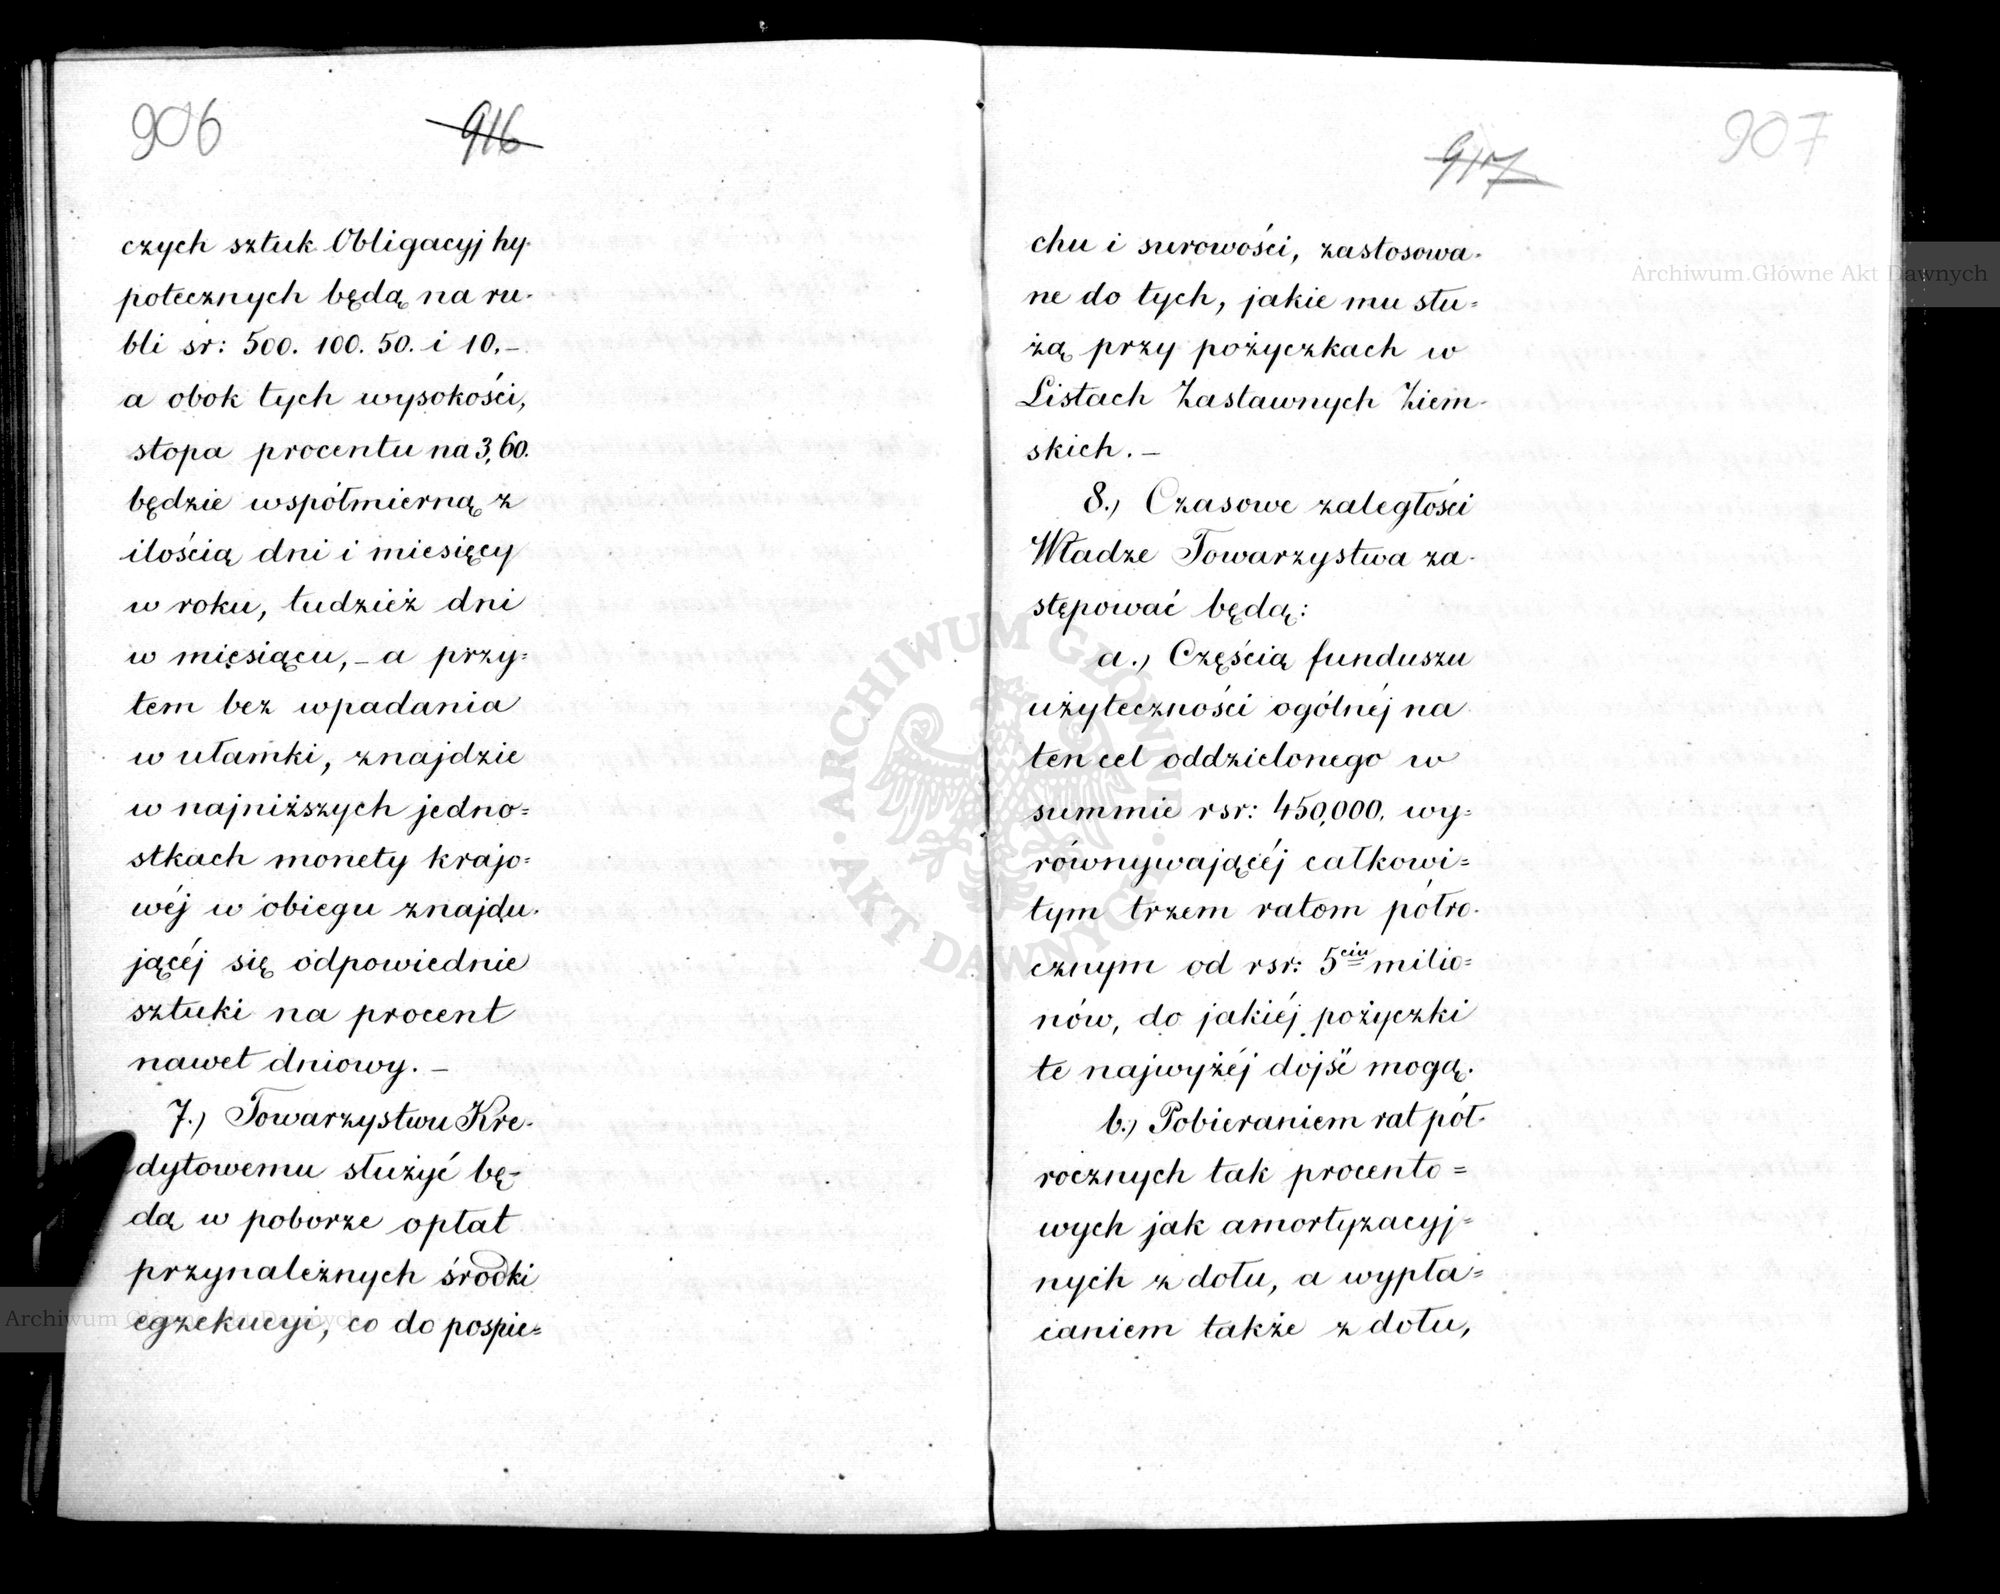 906 916
czych sztuk Obligacyj hy-
potecznych będą na ru-
bli sr: 500. 100. 50. i 10.–
a obok tych wysokości,
stopa procentu na 3,60.
będzie współmierną z
ilością dni i miesięcy
w roku, tudzież dni
w miesiącu, – a przy=
tem bez wpadania
w ułamki, znajdzie
w najniższych jedno=
stkach monety krajo=
wéj w obiegu znajdu-
jącéj się odpowiednie
sztuki na procent
nawet dniowy. –
7.) Towarzystwu Kre-
dytowemu służyć bę-
dą w poborze opłat
przynależnych środki
egzekucyi, co do pospie=
917 907
chu i surowości, zastosowa-
ne do tych, jakie mu słu=
żą przy pożyczkach w
Listach Zastawnych Ziem-
skich. –
8.) Czasowe zaległości
Władze Towarzystwa za-
stępować będą:
a.) Częścią funduszu
użyteczności ogólnéj na
ten cel oddzielonego w
summie rsr: 450,000. wy=
równywającéj całkowi=
tym trzem ratom półro-
cznym od rsr: 5ciu milio=
nów, do jakiéj pożyczki
te najwyżéj dojść mogą.
b.) Pobieraniem rat pół-
rocznych tak procento=
wych jak amortyzacyj=
nych z dołu, a wypła=
caniem także z dołu,
Archiwum Główne Akt Dawnych
Archiwum Główne Akt Dawnych
ARCHIWUM GŁÓWNE AKT DAWNYCH